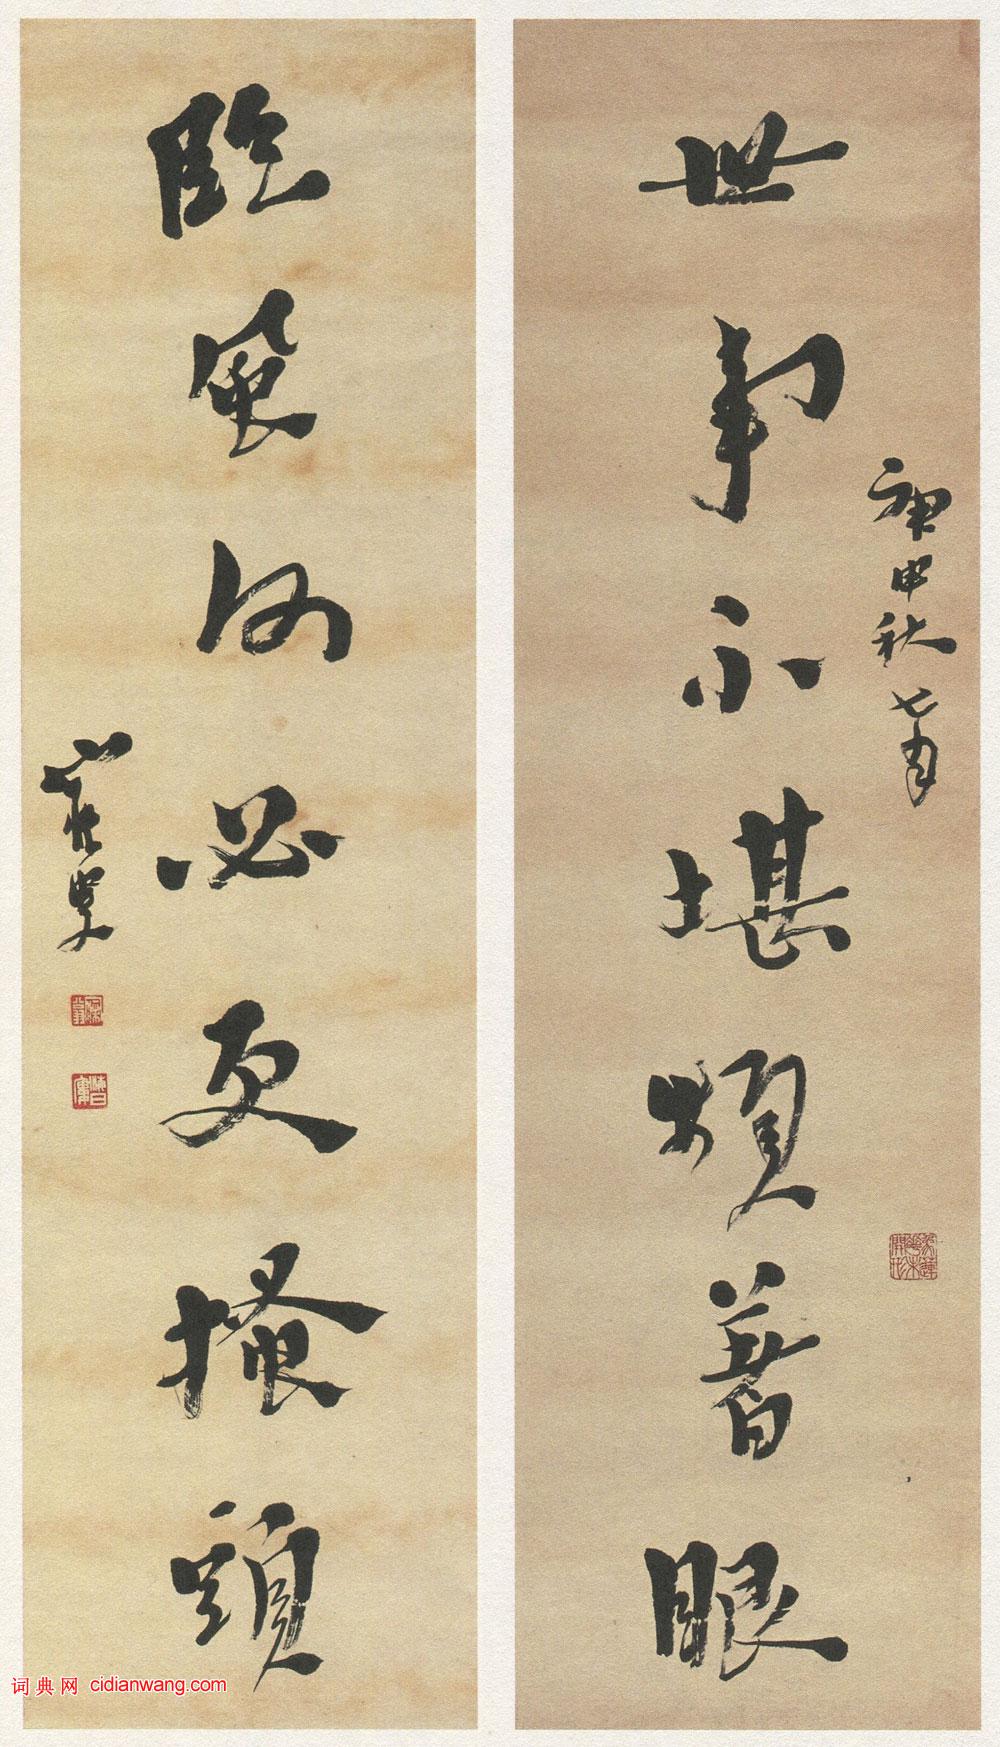 世事不堪頻著眼
庚申秋七月
臨風何必更搔頭
詞典网 cidianwang.com